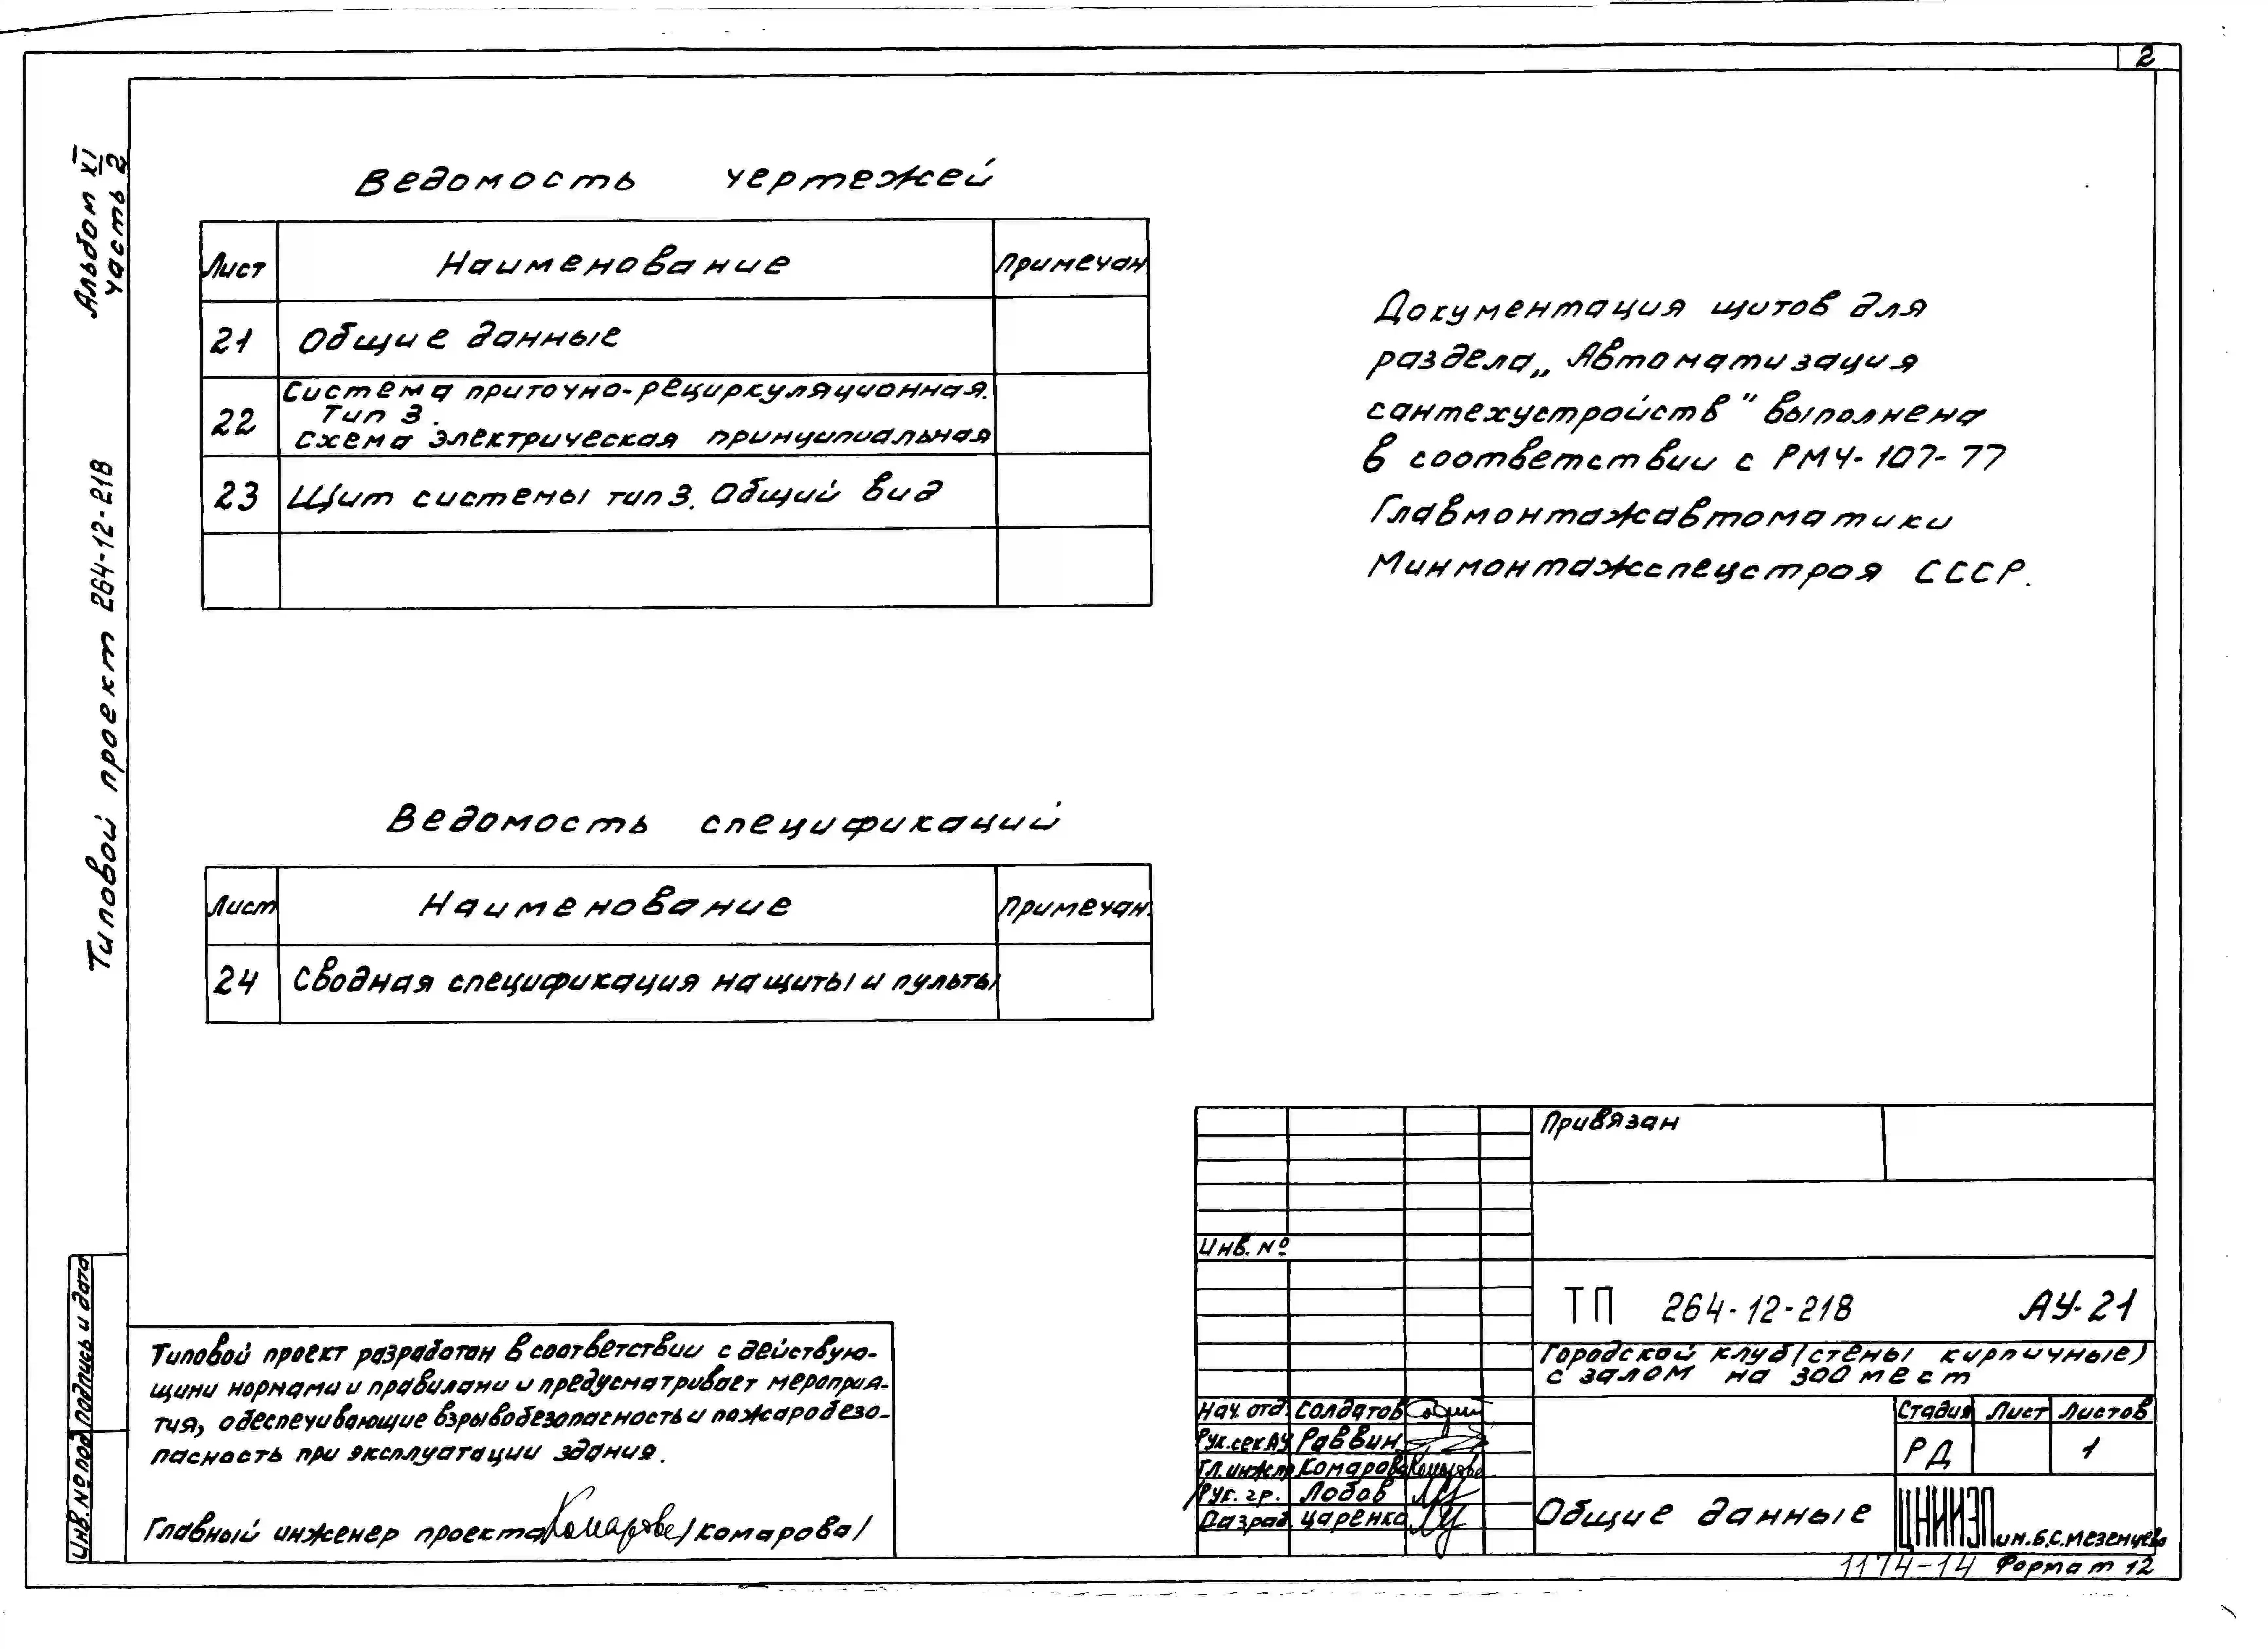 2
Альбом XI
часть 2
Типовой проект 264-12-218
Ведомость чертежей
Лист Наименование Примечан.
21 Общие данные
22 Система приточно-рециркуляционная.
Тип 3.
Схема электрическая принципиальная
23 Щит системы тип 3. Общий вид
Документация щитов для
раздела „Автоматизация
сантехустройств" выполнена
в соответствии с РМ4-107-77
Главмонтажавтоматики
Минмонтажспецстроя СССР.
Ведомость спецификаций
Лист Наименование Примечан.
24 Сводная спецификация на щиты и пульты
Инв. № под
подпись и дата
Типовой проект разработан в соответствии с действую-
щими нормами и правилами и предусматривает мероприя-
тия, обеспечивающие взрывобезопасность и пожаробезо-
пасность при эксплуатации здания.
Главный инженер проекта Комарова /Комарова/
Привязан
Инв. №
ТП 264-12-218 АУ-21
Городской клуб (стены кирпичные)
с залом на 300 мест
Нач. отд. Солдатов
Рук. сек АУ Раввин
Гл. инж. пр Комарова Комарова
Рук. гр. Лобов
Разраб. Царенко
Стадия Лист Листов
РД 1
Общие данные
ЦНИИЭП им. Б.С. Мезенцева
1174-14 Формат 12